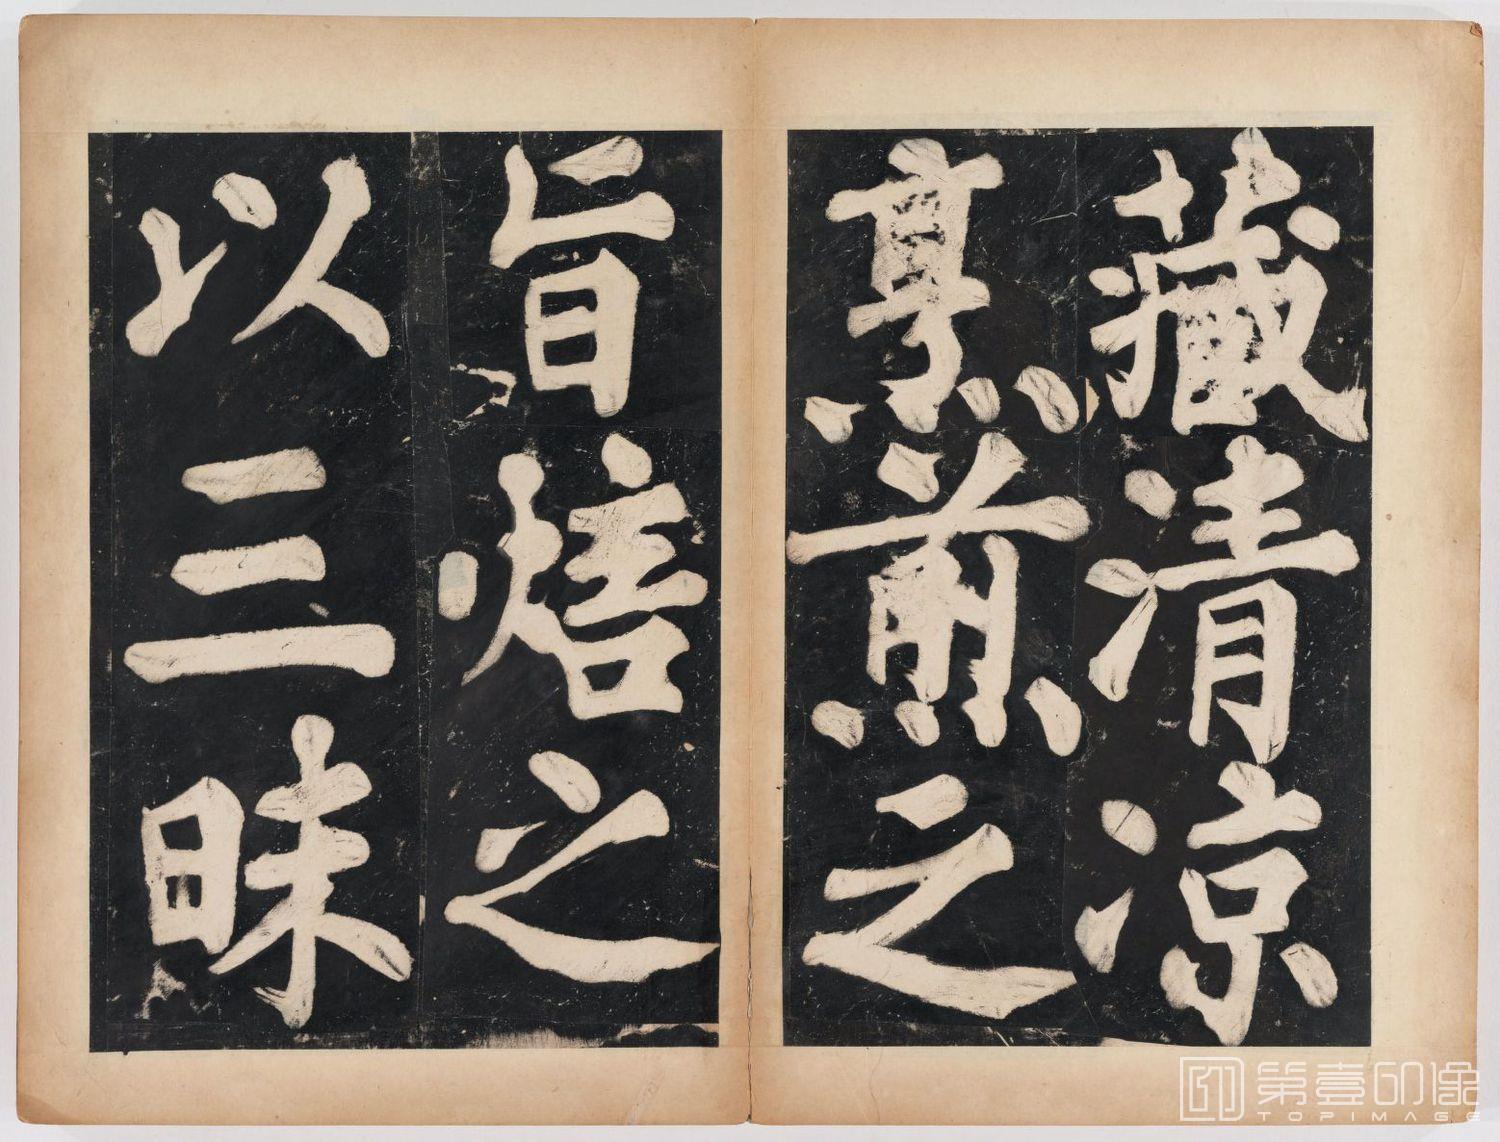 藏清凉
烹煎之
旨焙之
以三昧
第壹印像
TOPIMAGE